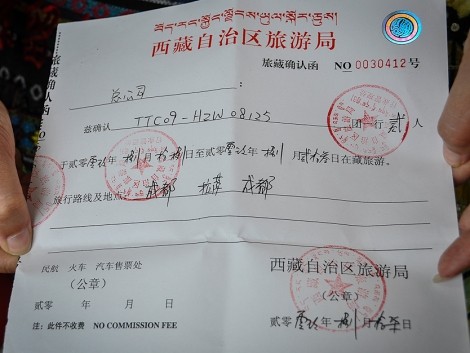 བོད་རང་སྐྱོང་ལྗོངས་ཡུལ་སྐོར་ཅུས།
西藏自治区旅游局
旅藏确认函 NO 0030412 号
旅藏确认函
总公司
兹确认 TTC09-HZW08125 团一行 贰 人
于贰零零玖年 捌月拾捌日至贰零零玖年 捌月 日在藏旅游。
旅行路线及地点: 成都 拉萨 成都
民航 火车 汽车售票处
（公章）
贰零 年 月 日
注：此件不收费 NO COMMISSION FEE
西藏自治区旅游局
（公章）
贰零零玖年捌月 日